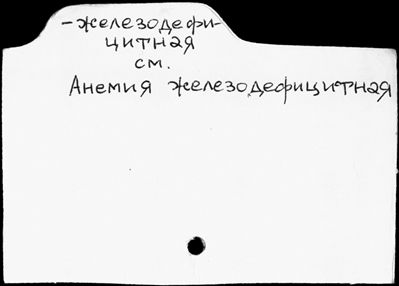 -железодефи-
цитная
см.
Анемия железодефицитная